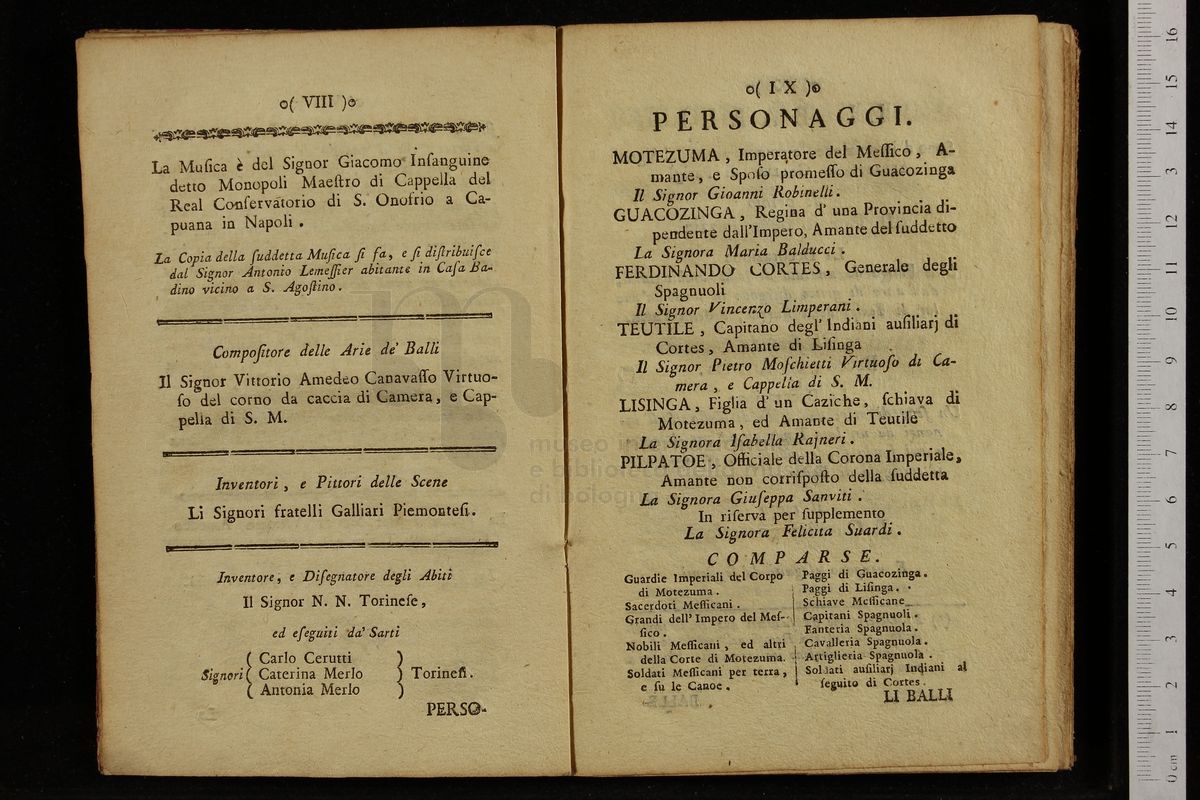 o( VIII )o
La Muſica è del Signor Giacomo Inſanguine
detto Monopoli Maeſtro di Cappella del
Real Conſervatorio di S. Onofrio a Ca-
puana in Napoli .
La Copia della ſuddetta Muſica ſi fa, e ſi diſtribuiſce
dal Signor Antonio Lemeſſier abitante in Caſa Ba-
dino vicino a S. Agoſtino.
Compoſitore delle Arie de' Balli
Il Signor Vittorio Amedeo Canavaſſo Virtuo-
ſo del corno da caccia di Camera, e Cap-
pella di S. M.
Inventori, e Pittori delle Scene
Li Signori fratelli Galliari Piemonteſi.
Inventore, e Diſegnatore degli Abiti
Il Signor N. N. Torineſe,
ed eſeguiti da' Sarti
Signori ( Carlo Cerutti )
( Caterina Merlo ) Torineſi.
( Antonia Merlo )
PERSO-
o( IX )o
PERSONAGGI.
MOTEZUMA, Imperatore del Meſſico, A-
mante, e Spoſo promeſſo di Guacozinga
Il Signor Gioanni Robinelli.
GUACOZINGA, Regina d' una Provincia di-
pendente dall'Impero, Amante del ſuddetto
La Signora Maria Balducci.
FERDINANDO CORTES, Generale degli
Spagnuoli
Il Signor Vincenzo Limperani.
TEUTILE, Capitano degl' Indiani auſiliarj di
Cortes, Amante di Liſinga
Il Signor Pietro Moſchietti Virtuoſo di Ca-
mera, e Cappella di S. M.
LISINGA, Figlia d' un Caziche, ſchiava di
Motezuma, ed Amante di Teutile
La Signora Iſabella Rajneri.
PILPATOE, Officiale della Corona Imperiale,
Amante non corriſpoſto della ſuddetta
La Signora Giuſeppa Sanviti.
In riſerva per ſupplemento
La Signora Felicita Suardi.
COMPARSE.
Guardie Imperiali del Corpo
di Motezuma.
Sacerdoti Meſſicani.
Grandi dell' Impero del Meſ-
ſico.
Nobili Meſſicani, ed altri
della Corte di Motezuma.
Soldati Meſſicani per terra,
e ſu le Canoe.
Paggi di Guacozinga.
Paggi di Liſinga.
Schiave Meſſicane
Capitani Spagnuoli.
Fanteria Spagnuola.
Cavalleria Spagnuola.
Artiglieria Spagnuola.
Soldati auſiliarj Indiani al
ſeguito di Cortes.
LI BALLI